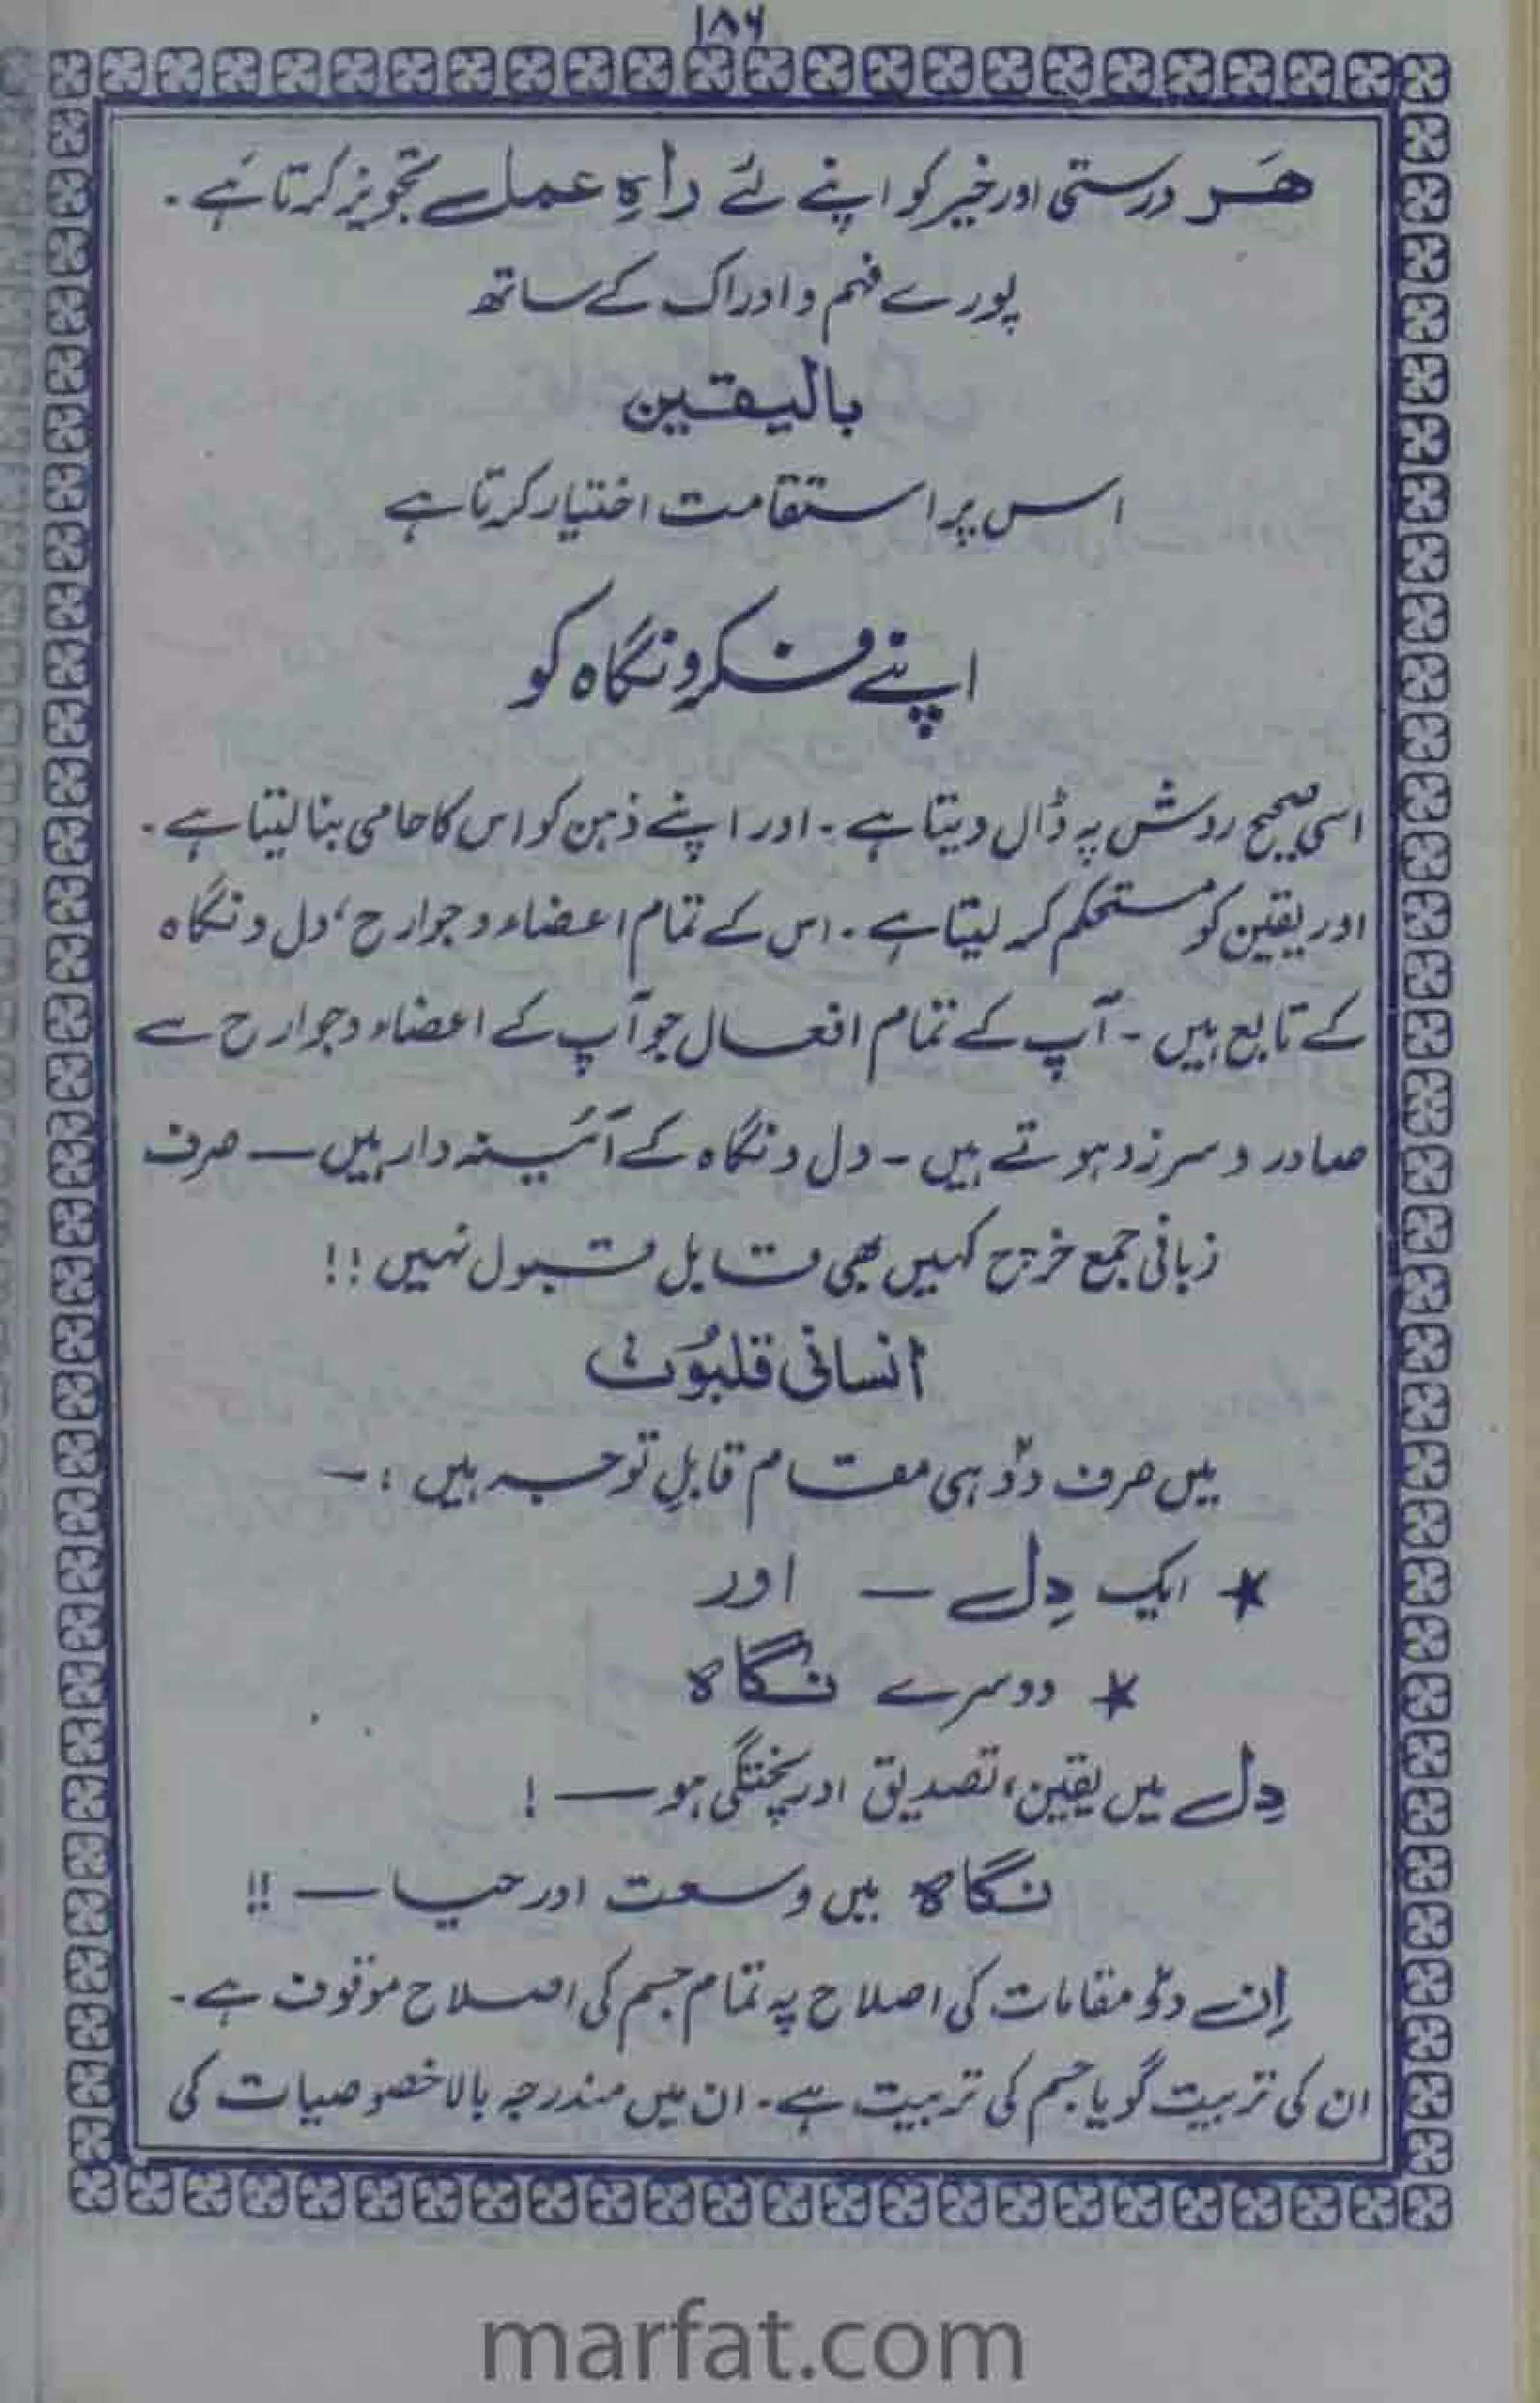 ۱۸۶
ھَر درستی اور خیر کو اپنے لئے راہِ عمل تجویز کرتا ہے۔
پورے فہم و ادراک کے ساتھ
بالیقین
اس پر استقامت اختیار کرتا ہے
اپنے فکر و نگاہ کو
اسی صحیح روش پہ ڈال دیتا ہے۔ اور اپنے ذہن کو اس کا حامی بنا لیتا ہے۔
اور یقین کو مستحکم کر لیتا ہے۔ اس کے تمام اعضاء و جوارح، دل و نگاہ
کے تابع ہیں۔ آپ کے تمام افعال جو آپ کے اعضاء و جوارح سے
صادر و سرزد ہوتے ہیں۔ دل و نگاہ کے آئینہ دار ہیں — صرف
زبانی جمع خرچ کہیں بھی قابل قبول نہیں !!
انسانی قلبُوت
میں صرف دو ہی مقام قابلِ توجہ ہیں :-
★ ایک دِل — اور
★ دوسرے نگاہ
دِل میں یقین، تصدیق اور پختگی ہو — !
نگاہ میں وسعت اور حیا — !!
اِن دو مقامات کی اصلاح پہ تمام جسم کی اصلاح موقوف ہے۔
ان کی تربیت گویا جسم کی تربیت ہے۔ ان میں مندرجہ بالا خصوصیات کی
marfat.com